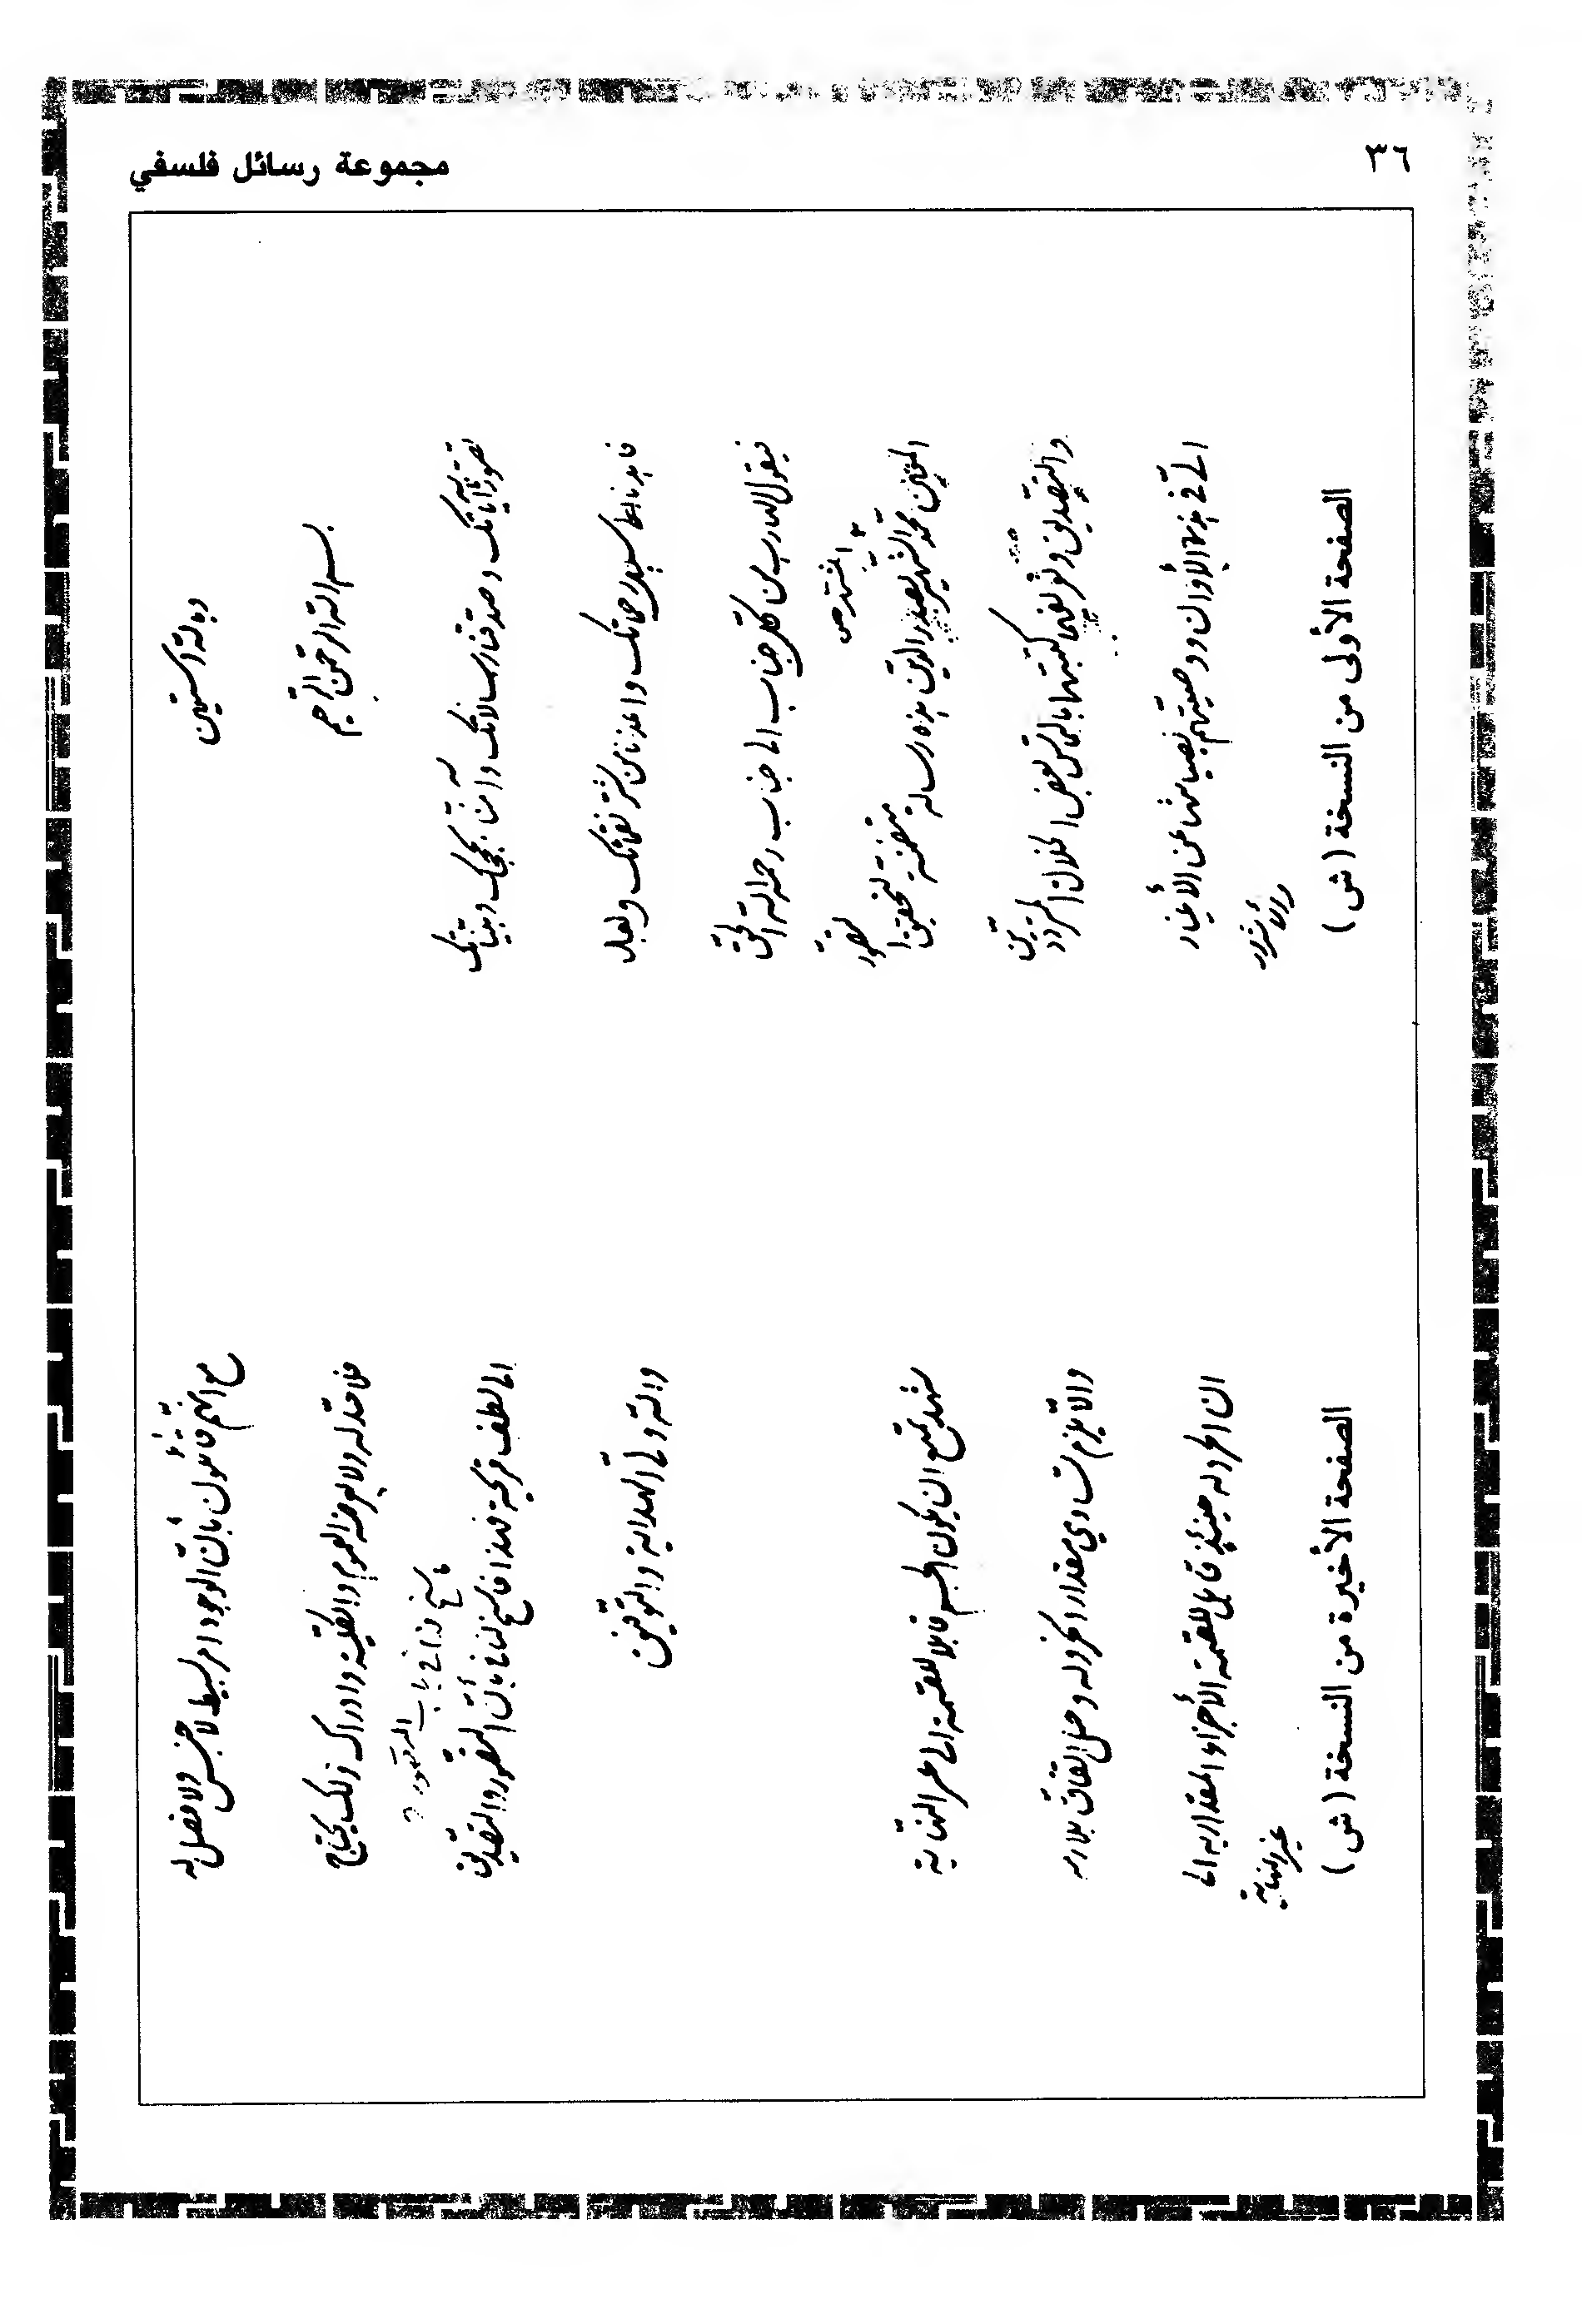 ٣٦
مجموعة رسائل فلسفي
وبالله استعين
بسم الله الرحمن الرحيم
تصورنا آياتك وصدقنا رسالاتك وآمنا به بحججك وبيناتك
فاهدنا سبيل رحماتك واعذنا من شر نقماتك وبعد
فيقول الهارب من كل جناب الى جناب رحمة الله الحق
محمد الشهير بصدر الدين هذه رسالة متضمنة لتحقيق
لتصور
والتصديق وتعريفهما كتبتها بالتماس بعض الخلان المترددين
الى في هذه الأوان ووصيتهم بصيانتها عن الأغيار
والأشرار
الصفحة الأولى من النسخة (ش)
مع انهم قائلون بأن الوجود امر بسيط لا جنس ولا فصل له
فلا حد له ولا يعرضه العموم والكلية وادراك ذلك يحتاج
الى لطف قريحة فهذا ما سنح لنا بأن التصور والتصديق
ما سنح لنا في باب التصور
والله ولي الهداية والتوفيق
يمتنع ان يكون الجسم قابلا للقسمة الى غير النهاية
والا يلزم تساوي مقدار الخردلة وجبل
ان الخردلة حينئذ قابل للقسمة الأجزاء المقدارية الى
غير النهاية
الصفحة الأخيرة من النسخة (ش)